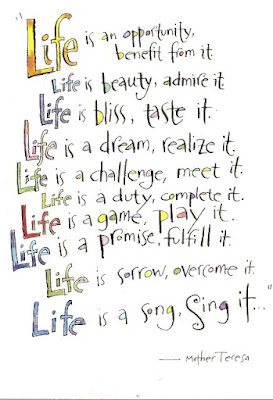 "Life is an opportunity,
benefit from it.
Life is beauty, admire it
Life is bliss, taste it.
Life is a dream, realize it.
Life is a challenge, meet it.
Life is a duty, complete it.
Life is a game, play it.
Life is a promise, fulfill it.
Life is sorrow, overcome it.
Life is a song, Sing it..."
— Mother Teresa